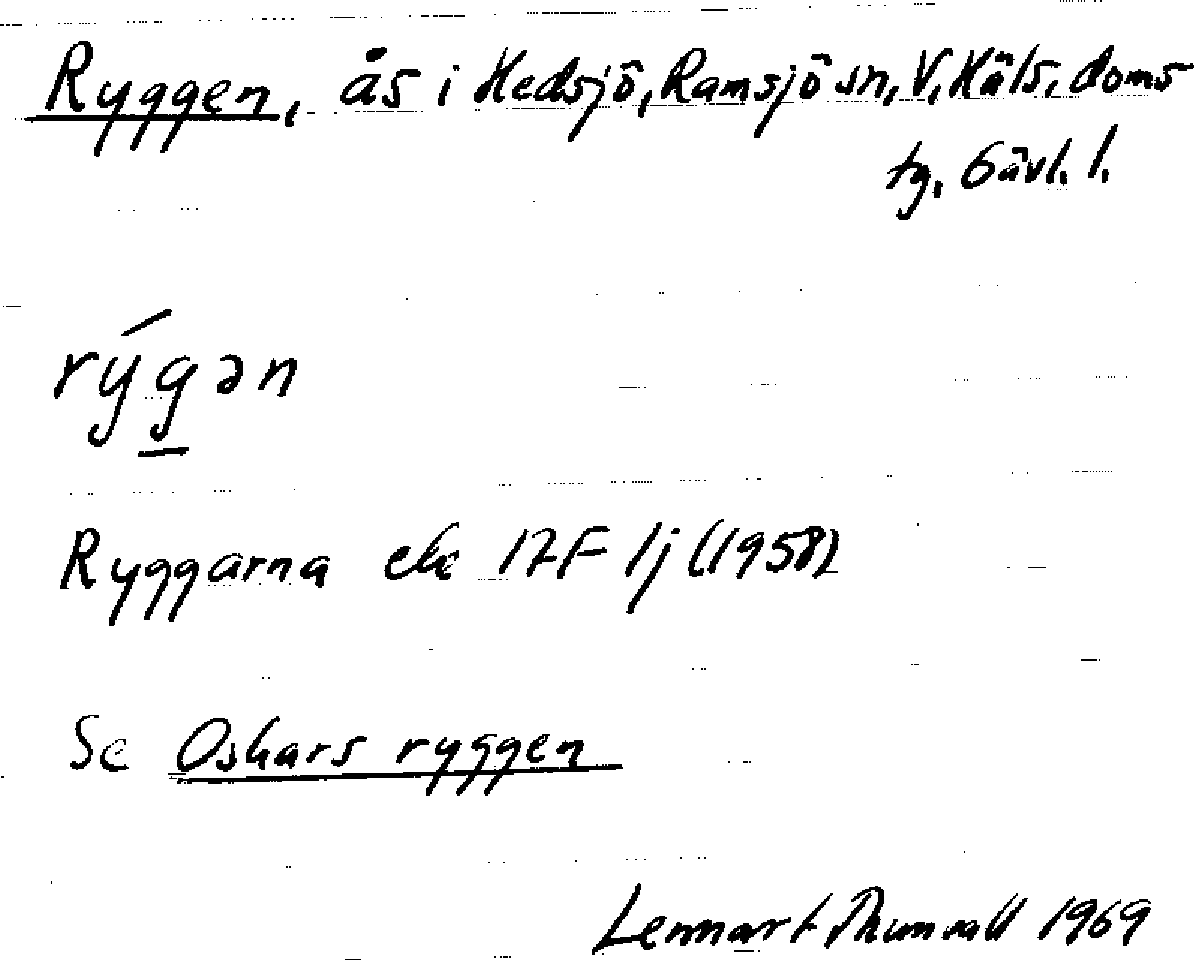 Ryggen, ås i Hedsjö, Ramsjö sn, V. Häls. doms
tg. Gävl. l.
rýgən
Ryggarna ek 17F 1j (1958)
Se Oskars ryggen
Lennart Thunvall 1969